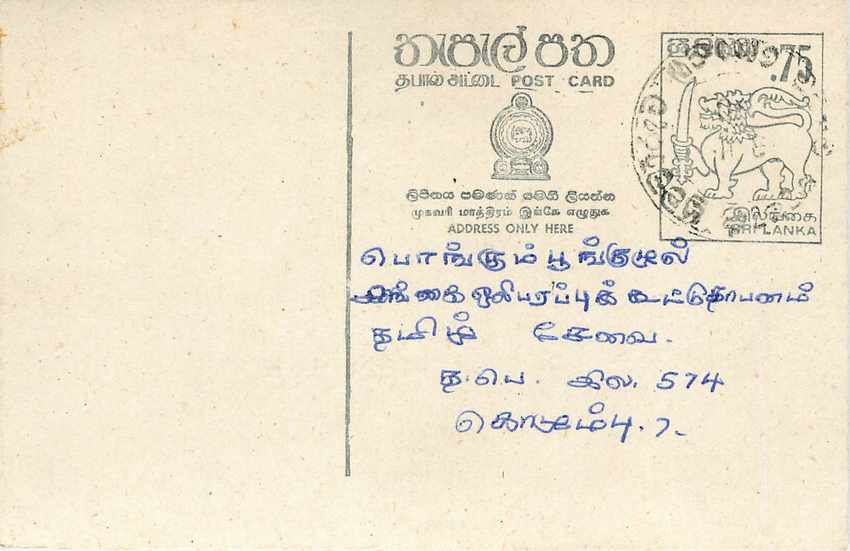 තැපැල් පත
தபால் அட்டை POST CARD
ලිපිනය පමණක් මෙහි ලියන්න
முகவரி மாத்திரம் இங்கே எழுதுக
ADDRESS ONLY HERE
.75
இலங்கை
SRI LANKA
பொங்கும் பூங்குழல்
இலங்கை ஒலிபரப்புக் கூட்டுதாபனம்
தமிழ் சேவை.
த.பெ. இல. 574
கொழும்பு. 7.